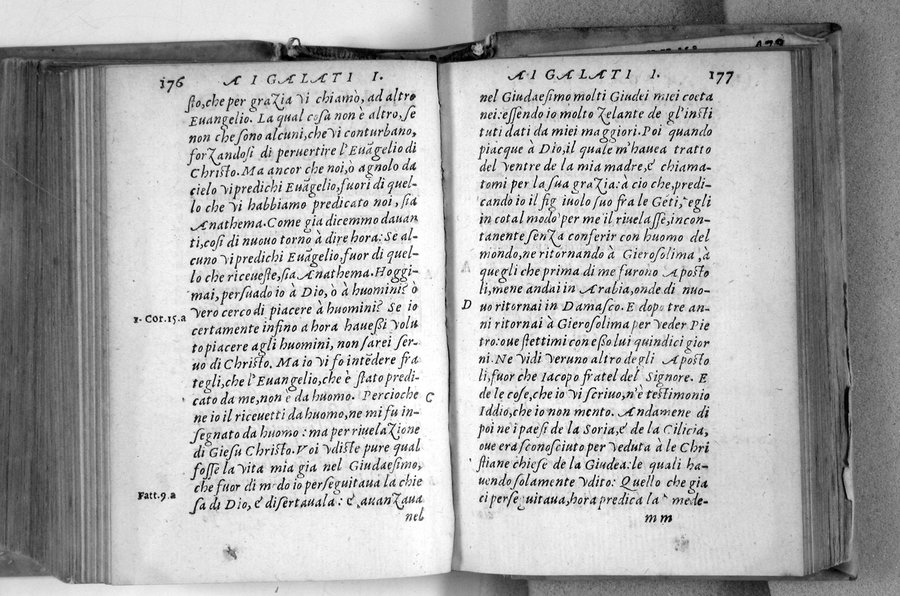 176 AI GALATI I.
sto, che per grazia vi chiamò, ad altro
Euangelio. La qual cosa non è altro, se
non che sono alcuni, che vi conturbano,
forzandosi di peruertire l'Euãgelio di
Christo. Ma ancor che noi, ò agnolo da
cielo vi predichi Euãgelio, fuori di quel-
lo che vi habbiamo predicato noi, sia
Anathema. Come gia dicemmo dauan
ti, cosi di nuouo torno à dire hora: Se al-
cuno vi predichi Euãgelio, fuor di quel-
lo che riceueste, sia Anathema. Hoggi-
mai, persuado io à Dio, ò à huomini? ò
vero cerco di piacere à huomini? Se io
1. Cor. 15. a
certamente infino a hora hauessi volu
to piacere agli huomini, non sarei ser-
uo di Christo. Ma io vi fo intẽdere fra
tegli, che l'Euangelio, che è stato predi-
cato da me, non è da huomo. Percioche
C
ne io il riceuetti da huomo, ne mi fu in-
segnato da huomo: ma per riuelazione
di Giesu Christo. Voi vdiste pure qual
fosse la vita mia gia nel Giudaesimo,
che fuor di modo io perseguitaua la chie
Fatt. 9. a
sa di Dio, é disertauala: é auanzaua
nel
AI GALATI I. 177
nel Giudaesimo molti Giudei miei coeta
nei: essendo io molto zelante de gl'insti
tuti dati da miei maggiori. Poi quando
piacque à Dio, il quale m'hauea tratto
del ventre de la mia madre, é chiama-
tomi per la sua grazia: à cio che, predi-
cando io il figiuolo suo fra le Geti, egli
in cotal modo per me il riuelasse, incon-
tanente senza conferir con huomo del
mondo, ne ritornando à Gierosolima, à
quegli che prima di me furono Aposto
li, mene andai in Arabia, onde di nuo-
D
uo ritornai in Damasco. E dopo tre an-
ni ritornai à Gierosolima per veder Pie
tro: oue stettimi con esso lui quindici gior
ni. Ne vidi veruno altro degli Aposto
li, fuor che Iacopo fratel del Signore. E
de le cose, che io vi scriuo, n'è testimonio
Iddio, che io non mento. Andamene di
poi ne i paesi de la Soria, é de la Cilicia,
oue era sconosciuto per veduta à le Chri
stiane chiese de la Giudea: le quali ha-
uendo solamente vdito: Quello che gia
ci perseguitaua, hora predica la mede-
mm